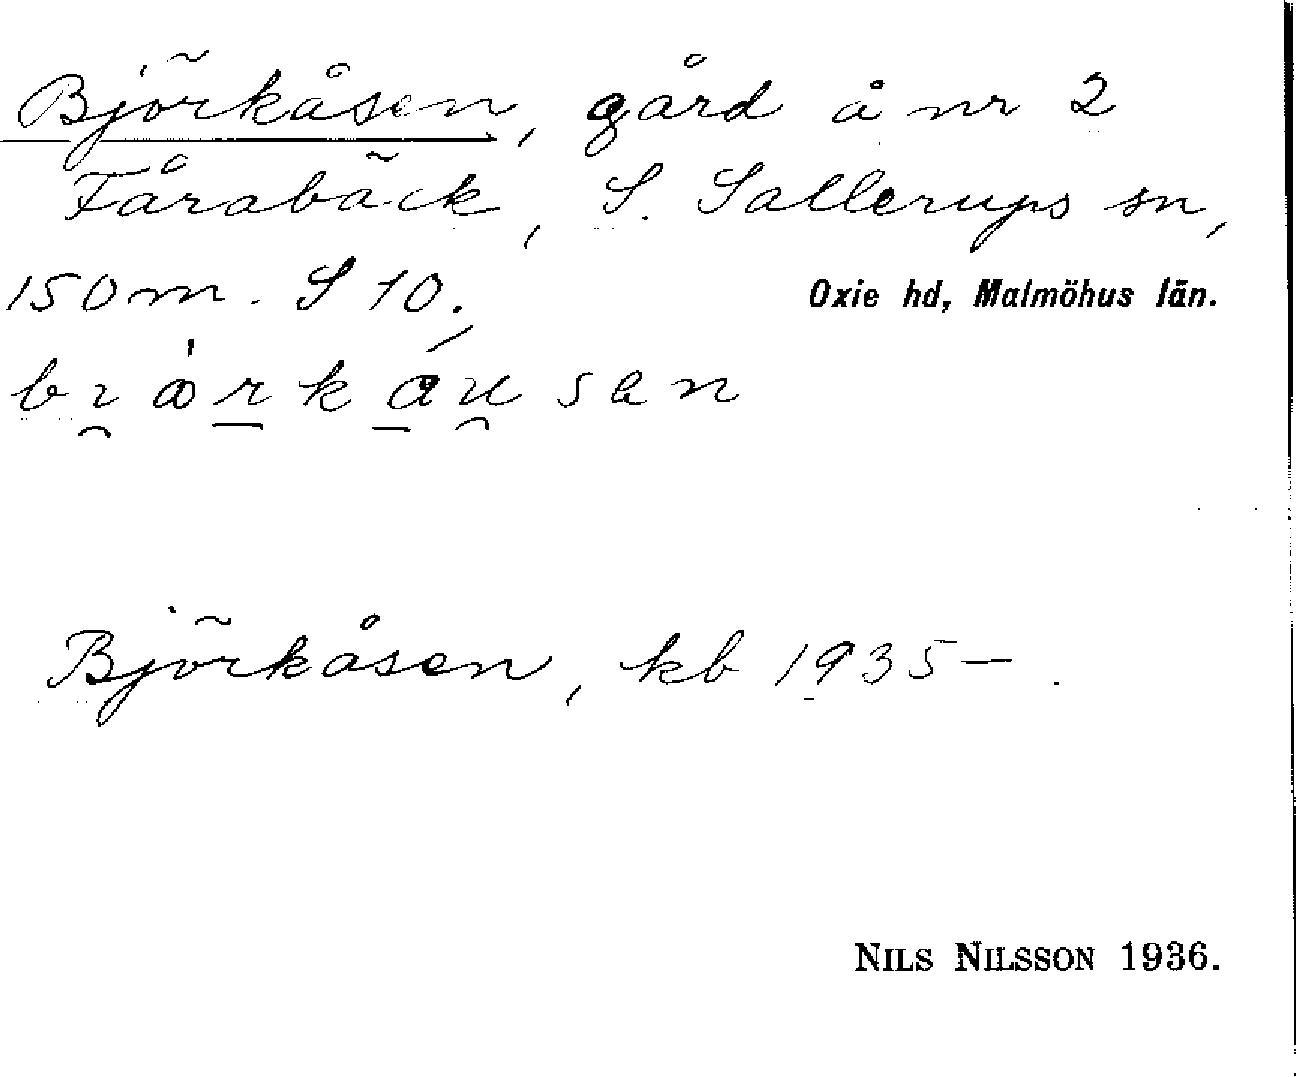 Björkåsen, gård å nr 2
Fårabäck, S. Sallerups sn,
150 m. S 10.
Oxie hd, Malmöhus län.
Björkåsen, kb 1935— .
NILS NILSSON 1936.